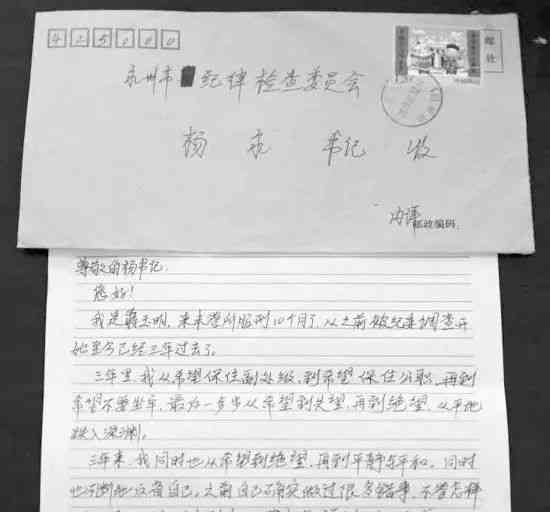 425100
邮 政
永州市 纪律检查委员会
杨 书记 收
内详
邮政编码
尊敬的杨书记:
您好!
我是蒋玉明,来 监 10个月了,从之前被纪委调查开
始至今已经三年过去了。
三年里,我从希望保住副处级,到希望保住公职,再到
希望不要坐牢,最后一步步从希望到失望,再到绝望,从平地
跌入深渊。
三年来,我同时也从希望到绝望,再到平静与平和。同时
也不断地反省自己,之前自己确实做过很多错事,不管怎样